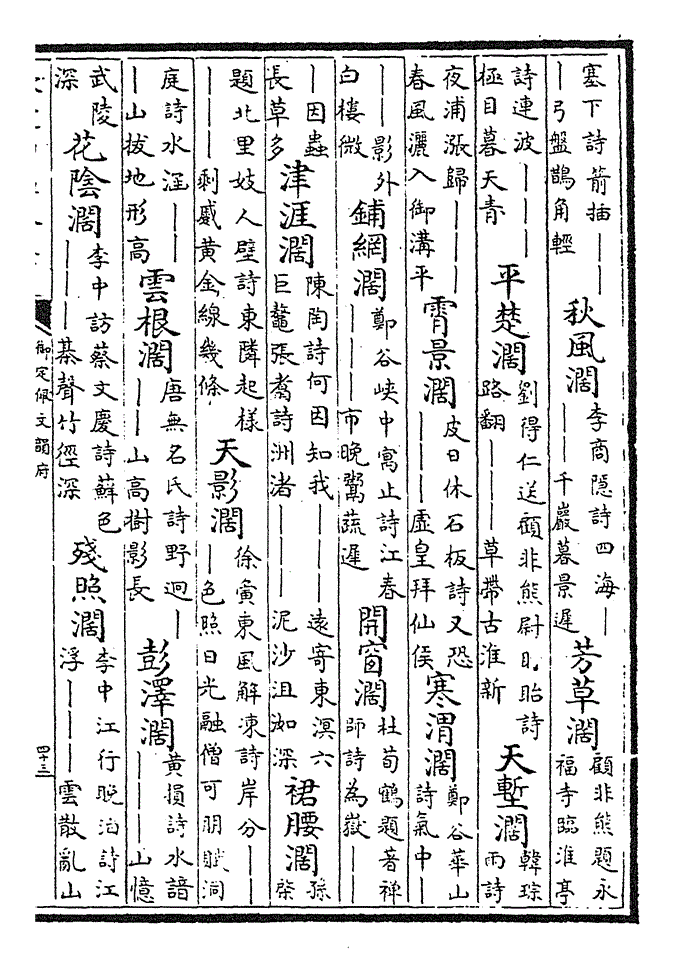 塞下詩箭插———弓盤鵲角輕 秋風濶 李商隱詩四海———千巖暮景遲 芳草濶 顧非熊題永福寺臨淮亭
詩連波———極目暮天青 平楚濶 劉得仁送顧非熊尉盱眙詩路翻———草帶古淮新 天塹濶 韓琮雨詩
夜浦漲歸———春風灑入御溝平 霄景濶 皮日休石板詩又恐———虛皇拜仙侯 寒渭濶 鄭谷華山詩氣中—
——影外白樓微 鋪網濶 鄭谷峽中寓止詩江春———市晚鬻蔬遲 開窗濶 杜荀鶴題著禪師詩為嶽—
——因蟲長草多 津涯濶 陳陶詩何因知我———遠寄東溟六巨鼇張喬詩洲渚———泥沙沮洳深 裙腰濶 孫棨
題北里妓人壁詩東隣起樣———剩蹙黃金線幾條 天影濶 徐夤東風解凍詩岸分——色照日光融僧可朋賦洞
庭詩水涵———山拔地形高 雲根濶 唐無名氏詩野迥———山高樹影長 彭澤濶 黃損詩水諳———山憶
武陵深 花陰濶 李中訪蔡文慶詩蘚色———棊聲竹徑深 殘照濶 李中江行晚泊詩江浮———雲散亂山
御定佩文韻府
四十三